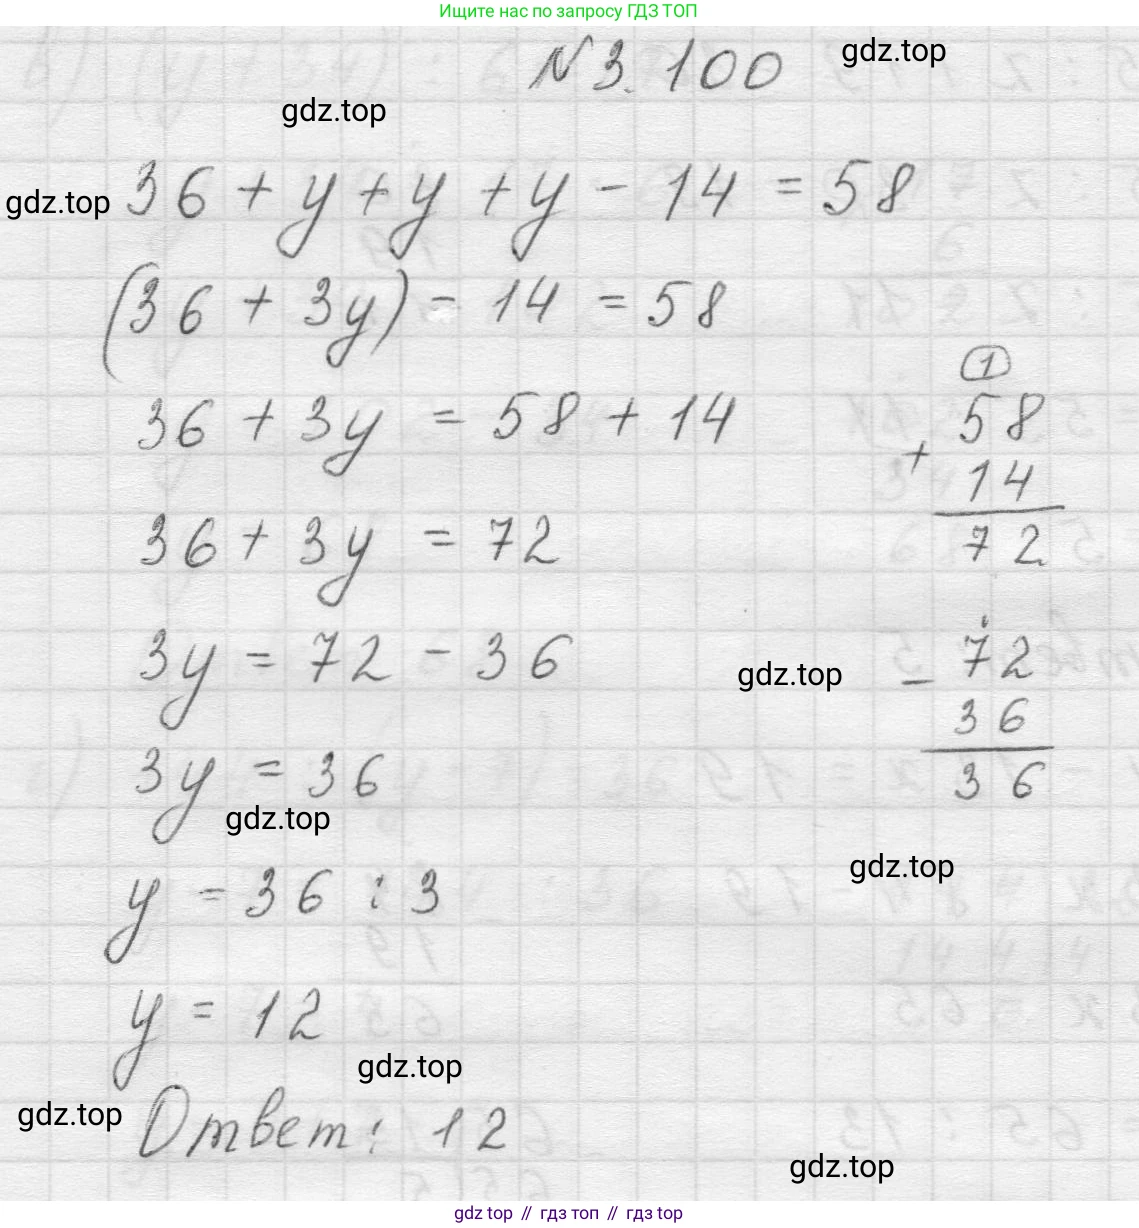 Ищите нас по запросу ГДЗ ТОП
№ 3.100
gdz.top
gdz.top
gdz.top
36 + y + y + y - 14 = 58
(36 + 3y) - 14 = 58
36 + 3y = 58 + 14
36 + 3y = 72
3y = 72 - 36
3y = 36
gdz.top
y = 36 : 3
y = 12
gdz.top
gdz.top
Ответ: 12
1
58
+ 14
72
gdz.top
- 72
36
36
gdz.top
gdz.top
gdz top // гдз топ // гдз top